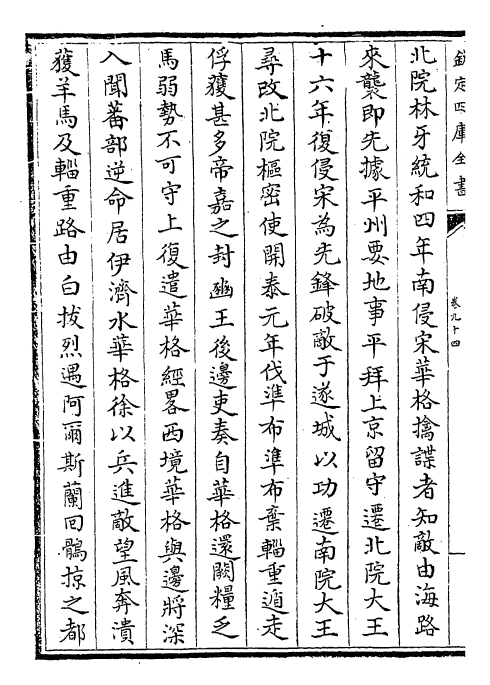 欽定四庫全書
卷九十四
北院林牙統和四年南侵宋華格擒諜者知敵由海路
來襲即先據平州要地事平拜上京留守遷北院大王
十六年復侵宋為先鋒破敵于遂城以功遷南院大王
尋改北院樞密使開泰元年伐準布準布棄輜重遁走
俘獲甚多帝嘉之封豳王後邊吏奏自華格還闕糧乏
馬弱勢不可守上復遣華格經畧西境華格與邊將深
入聞蕃部逆命居伊濟水華格徐以兵進敵望風奔潰
獲羊馬及輜重路由白拔烈遇阿爾斯蘭回鶻掠之都